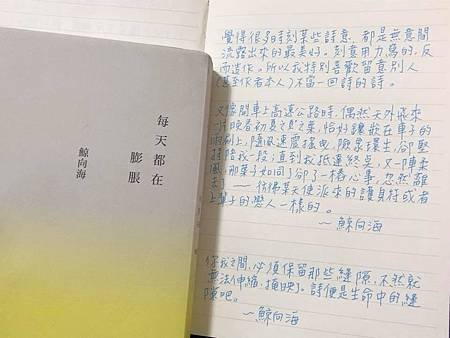 每天都在
膨脹
鯨向海
覺得很多時刻某些詩意,都是無意間
流露出來的最美好。刻意用力寫的,反
而造作。所以我特別喜歡留意別人
(甚至作者本人)不當一回詩的詩。
又 開車上高速公路時,偶然天外飛來
一片晚春初夏之 之葉,恰好鑲嵌在車子的
雨刷上,隨風速震搖曳,險象環生,卻堅
持陪我一段;直到我抵達終點,又一陣柔
風,那葉子如同了卻了一樁心事,忽然離
去——彷彿某天使派來的護身符或者
上輩子的戀人一樣的。
~鯨向海
你我之間,必須保留那些縫隙,不然就
無法伸縮,掩映了。詩便是生命中的縫
隙吧。
~鯨向海